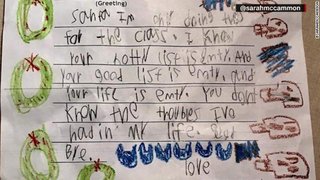 (Greeting)
@sarahmccammon
Santa Im only doing this
for the class. I know
Your notty list is emty. And
your good list is emty. and
Your life is emty. You dont
know the troubles Ive
had in my life. Good
Bye.
love